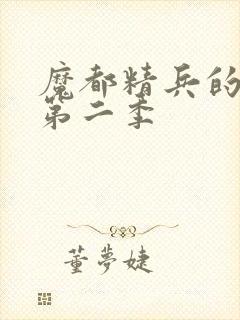 魔都精兵的
第二季
董夢婕